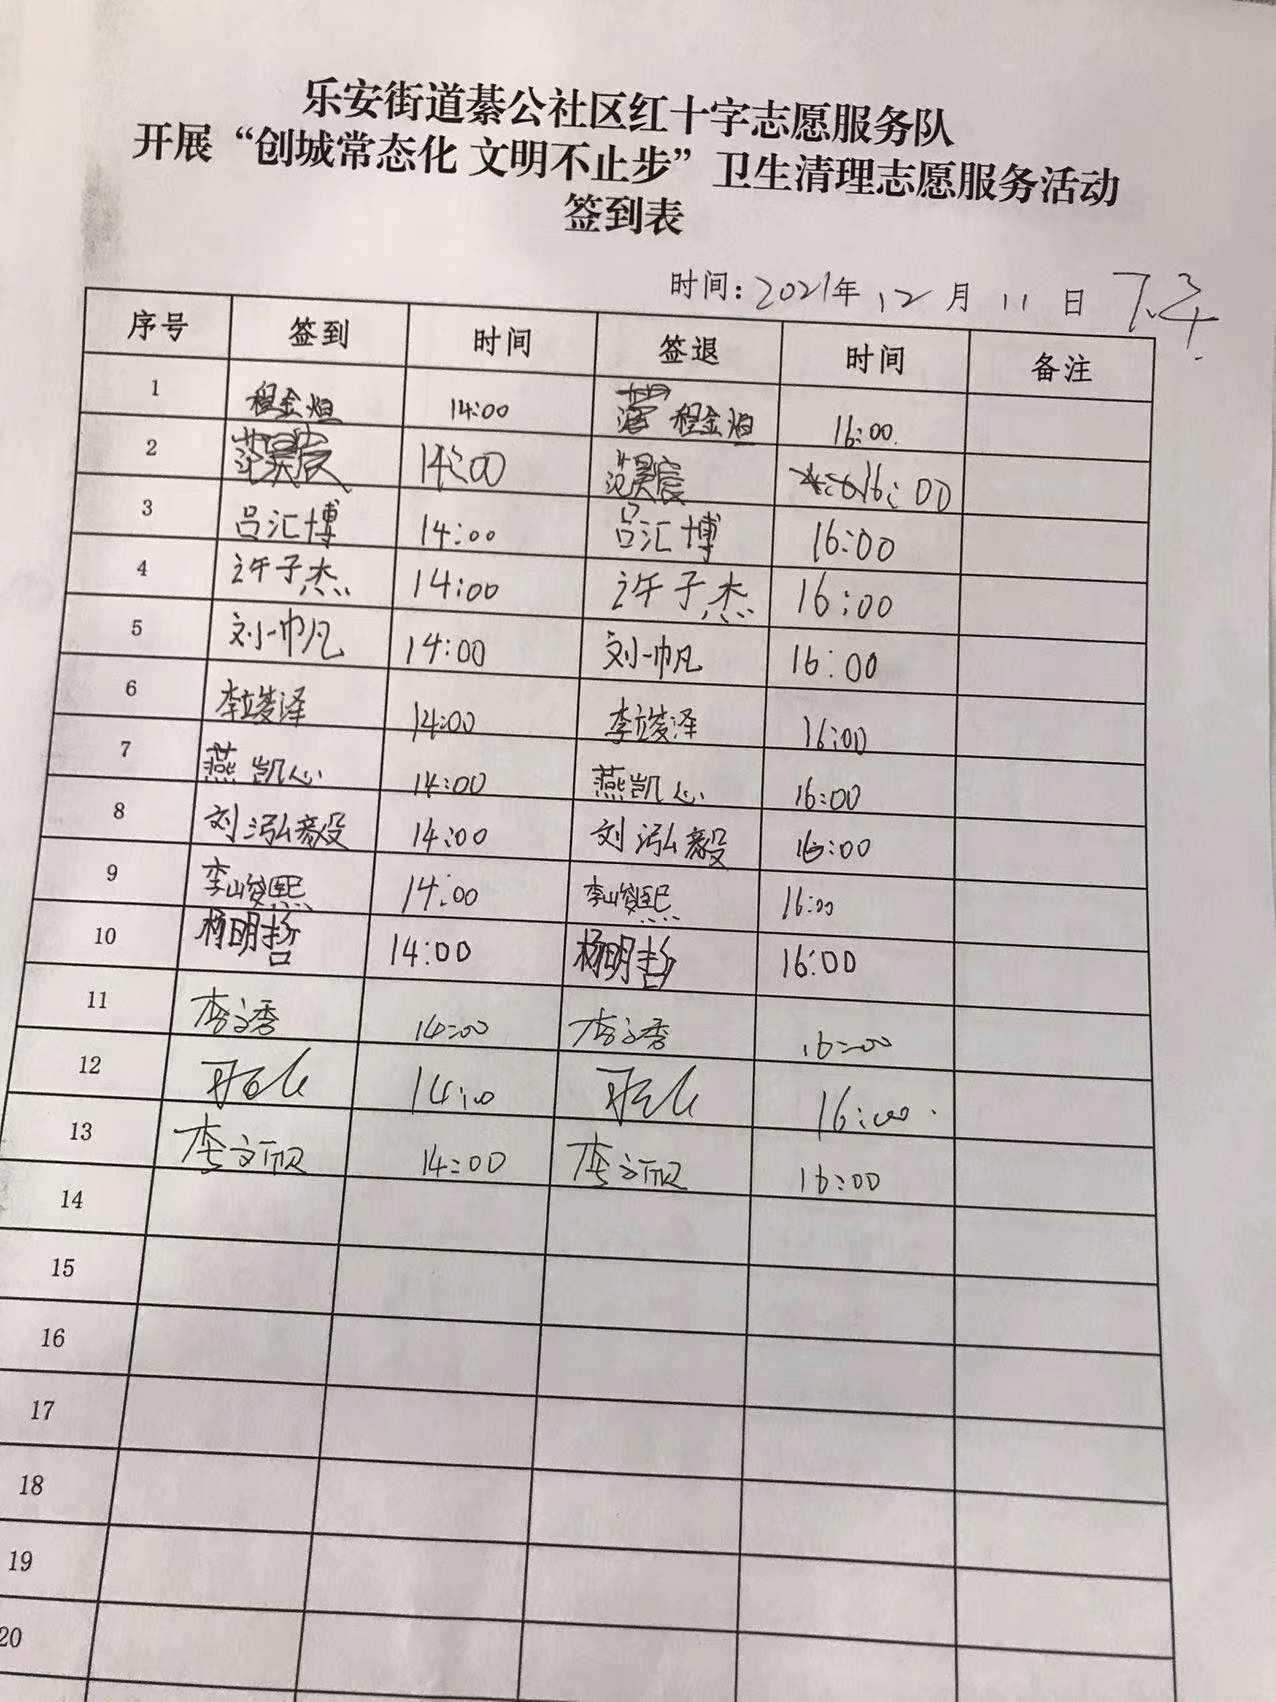 乐安街道綦公社区红十字志愿服务队
开展“创城常态化 文明不止步”卫生清理志愿服务活动
签到表
时间：2021年 12 月 11 日 下午
序号 签到 时间 签退 时间 备注
1 程金烜 14:00 程金烜 16:00
2 范昊宸 14:00 范昊宸 16:00
3 吕汇博 14:00 吕汇博 16:00
4 许子杰 14:00 许子杰 16:00
5 刘一帆 14:00 刘一帆 16:00
6 李竣泽 14:00 李竣泽 16:00
7 燕凯心 14:00 燕凯心 16:00
8 刘泓毅 14:00 刘泓毅 16:00
9 李峻熙 14:00 李峻熙 16:00
10 杨明哲 14:00 杨明哲 16:00
11 李文秀 14:00 李文秀 16:00
12 14:00 16:00
13 李文欣 14:00 李文欣 16:00
14
15
16
17
18
19
20